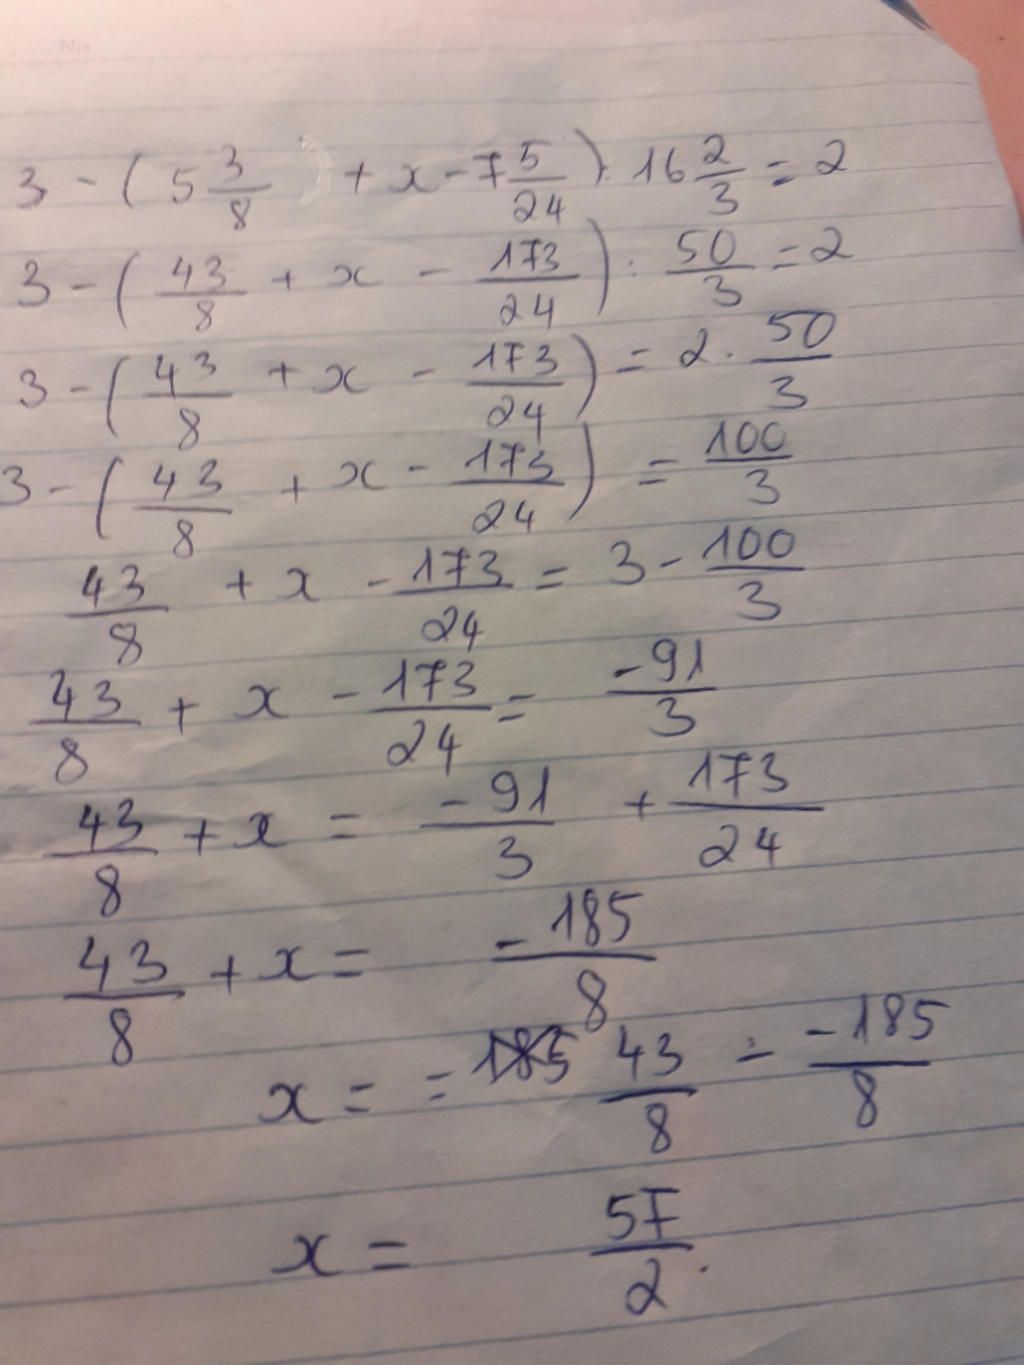 3 - (5 3/8 + x - 7 5/24) : 16 2/3 = 2
3 - (43/8 + x - 173/24) : 50/3 = 2
3 - (43/8 + x - 173/24) = 2 . 50/3
3 - (43/8 + x - 173/24) = 100/3
43/8 + x - 173/24 = 3 - 100/3
43/8 + x - 173/24 = -91/3
43/8 + x = -91/3 + 173/24
43/8 + x = -185/8
x = = 185 43/8 - -185/8
x = 57/2.